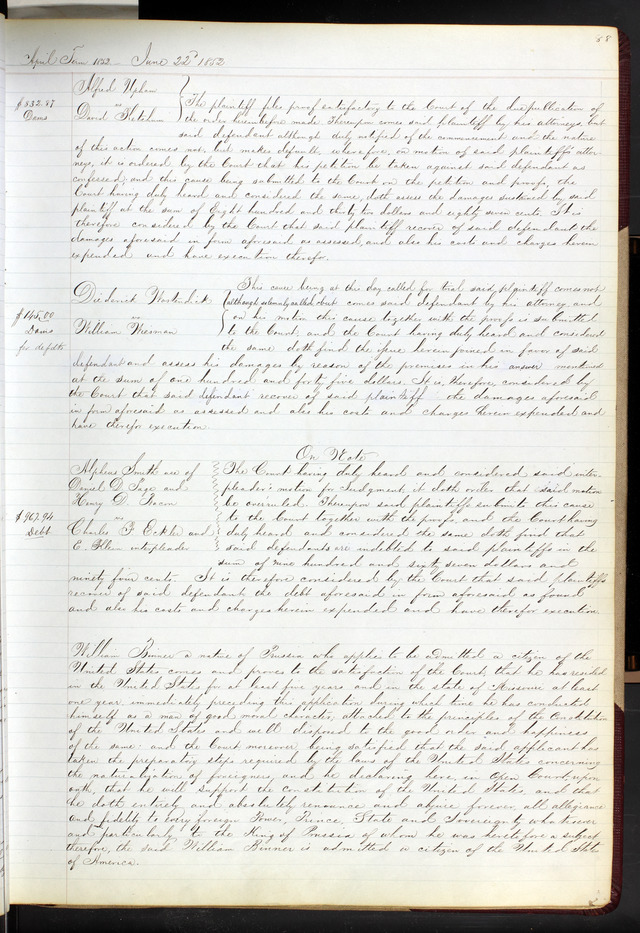 58
April Term 1852 - June 22d 1852
Alfred Upham
vs
David Ketcham
$832.87
Dams
The plaintiff files proof satisfactory to the Court of the due publication of
the order heretofore made. Thereupon comes said plaintiff by his attorneys, but
said defendant although duly notified of the commencement and the nature
of this action comes not, but makes default, wherefore, on motion of said plaintiffs attor-
neys, it is ordered by the Court that his petition be taken against said defendant as
confessed, and this cause being submitted to the Court on the petition and proofs, the
Court having duly heard and considered the same, doth assess the damages sustained by said
plaintiff at the sum of Eight hundred and thirty two dollars and eighty seven cents. It is
therefore considered by the Court that said plaintiff recover of said defendant the
damages aforesaid in form aforesaid as assessed, and also his costs and charges herein
expended and have execution therefor.
Diederick
vs
William Wiesman
$145.00
Dams
for defdt
This cause being at this day called for trial said plaintiff comes not
although solemnly called, but comes said defendant by his attorney and
on his motion this cause together with the proofs is submitted
to the Court, and the Court having duly heard and considered
the same doth find the issue herein joined in favor of said
defendant and assess his damages by reason of the premises in his answer mentioned
at the sum of one hundred and forty five dollars. It is, therefore, considered by
the Court that said defendant recover of said plaintiff the damages aforesaid
in form aforesaid as assessed and also his costs and charges herein expended and
have therefor execution.
On Note
Alpheus Smith use of
Daniel D. Page and
Henry D. Bacon
vs
Charles F. Eckler and
E. interpleader
$967.94
Debt
The Court having duly heard and considered said inter
pleader's motion for Judgment, it doth order that said motion
be overruled. Thereupon said plaintiffs submits this cause
to the Court together with the proofs, and the Court having
duly heard and considered the same doth find that
said defendants are indebted to said plaintiffs in the
sum of nine hundred and sixty seven dollars and
ninety four cents. It is therefore considered by the Court that said plaintiffs
recover of said defendant the debt aforesaid in form aforesaid as found
and also his costs and charges herein expended and have therefor execution
William Binner a native of Prussia who applies to be admitted a citizen of the
United States, comes and proves to the satisfaction of the Court, that he has resided
in the United States for at least five years, and in the state of Missouri at least
one year immediately preceding this application during which time he has conducted
himself as a man of good moral character, attached to the principles of the Constitution
of the United States and well disposed to the good order and happiness
of the same: and the Court moreover, being satisfied that the said applicant has
taken the preparatory steps required by the laws of the United States concerning
the naturalization of foreigners, and he declaring here, in Open Court, upon
oath, that he will support the Constitution of the United States, and that
he doth entirely and absolutely renounce and abjure forever, all allegiance
and fidelity to every foreign Power, Prince, State and Sovereignty whatsoever
and particularly to the King of Prussia of whom he was heretofore a subject
therefore, the said William Binner is admitted a citizen of the United States
of America.